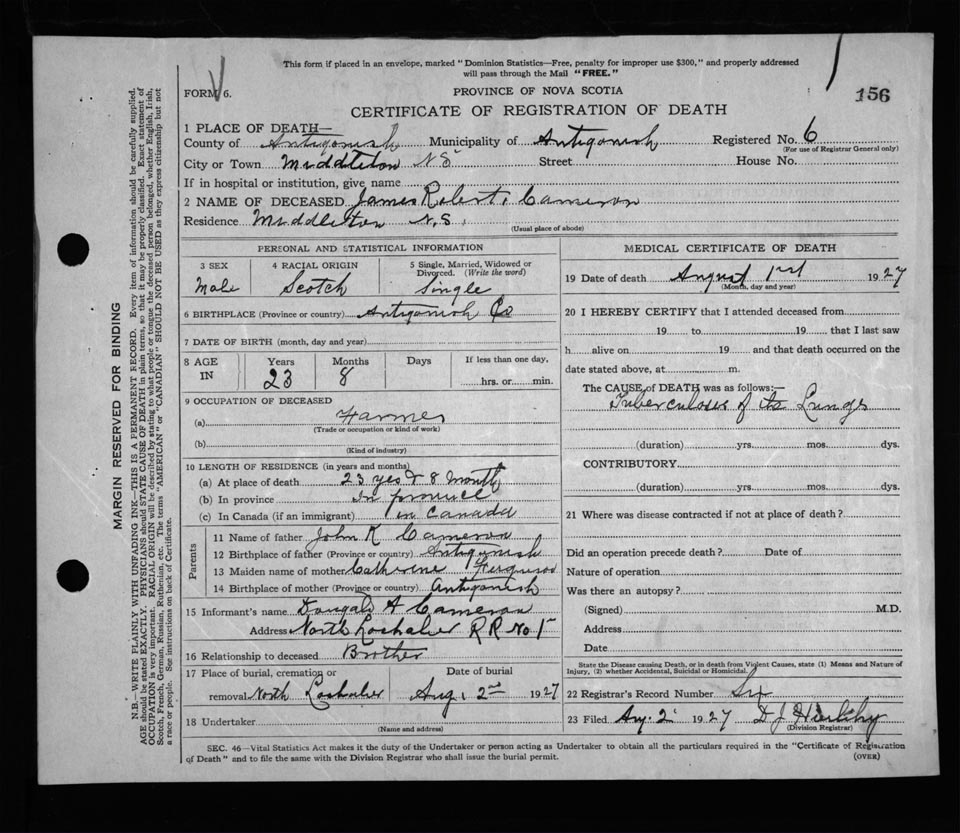 This form if placed in an envelope, marked "Dominion Statistics—Free, penalty for improper use $300," and properly addressed
will pass through the Mail "FREE."
FORM 6.
PROVINCE OF NOVA SCOTIA
156
CERTIFICATE OF REGISTRATION OF DEATH
1 PLACE OF DEATH—
County of Antigonish Municipality of Antigonish Registered No. 6
(For use of Registrar General only)
City or Town Middleton N S Street House No.
If in hospital or institution, give name
2 NAME OF DECEASED James Robert Cameron
Residence Middleton N.S.
(Usual place of abode)
PERSONAL AND STATISTICAL INFORMATION
3 SEX 4 RACIAL ORIGIN 5 Single, Married, Widowed or
Divorced. (Write the word)
Male Scotch Single
6 BIRTHPLACE (Province or country) Antigonish Co
7 DATE OF BIRTH (month, day and year)
8 AGE IN Years Months Days If less than one day,
23 8 hrs. or min.
9 OCCUPATION OF DECEASED
(a) Farmer
(Trade or occupation or kind of work)
(b)
(Kind of industry)
10 LENGTH OF RESIDENCE (in years and months)
(a) At place of death 23 yes & 8 month
(b) In province in province
(c) In Canada (if an immigrant) in Canada
Parents
11 Name of father John K Cameron
12 Birthplace of father (Province or country) Antigonish
13 Maiden name of mother Catherine Ferguson
14 Birthplace of mother (Province or country) Antigonish
15 Informant's name Dougald A Cameron
Address North Lochaber R R No 1
16 Relationship to deceased Brother
17 Place of burial, cremation or Date of burial
removal North Lochaber Aug, 2nd 1927
18 Undertaker
(Name and address)
MEDICAL CERTIFICATE OF DEATH
19 Date of death August 1927
(Month, day and year)
20 I HEREBY CERTIFY that I attended deceased from
19 to 19 that I last saw
h alive on 19 and that death occurred on the
date stated above, at m.
The CAUSE of DEATH was as follows:—
Tuberculoses of its Lungs
(duration) yrs. mos. dys.
CONTRIBUTORY
(duration) yrs. mos. dys.
21 Where was disease contracted if not at place of death?
Did an operation precede death? Date of
Nature of operation
Was there an autopsy?
(Signed) M.D.
Address
Date
State the Disease causing Death, or in death from Violent Causes, state (1) Means and Nature of
Injury, (2) whether Accidental, Suicidal or Homicidal.
22 Registrar's Record Number Six
23 Filed Aug. 2 1927 D J
(Division Registrar)
SEC. 46—Vital Statistics Act makes it the duty of the Undertaker or person acting as Undertaker to obtain all the particulars required in the "Certificate of Registration
of Death" and to file the same with the Division Registrar who shall issue the burial permit.
(OVER)
MARGIN RESERVED FOR BINDING
N.B.—WRITE PLAINLY WITH UNFADING INK—THIS IS A PERMANENT RECORD. Every item of information should be carefully supplied.
AGE should be stated EXACTLY. PHYSICIANS should STATE CAUSE OF DEATH in plain terms, so that it may be properly classified. Exact statement of
OCCUPATION is very important. RACIAL ORIGIN will be described by stating to what people or tongue the deceased person belonged, whether English, Irish,
Scotch, French, German, Russian, Ruthenian, etc. The terms "AMERICAN" or "CANADIAN" SHOULD NOT BE USED as they express citizenship but not
a race or people. See instructions on back of Certificate.